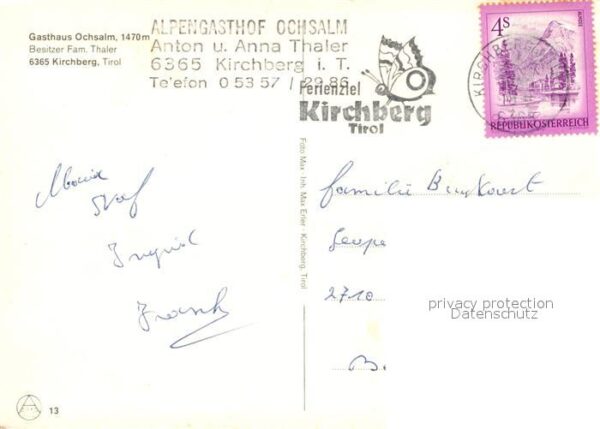 Gasthaus Ochsalm, 1470m
Besitzer Fam. Thaler
6365 Kirchberg, Tirol
ALPENGASTHOF OCHSALM
Anton u. Anna Thaler
6365 Kirchberg i. T.
Telefon 0 53 57 / 29 86
Ferienziel
Kirchberg
Tirol
4S
REPUBLIK ÖSTERREICH
Foto Max Inh. Max Erler · Kirchberg, Tirol
Ingrid
Frank
Familie
2710
privacy protection
Datenschutz
13